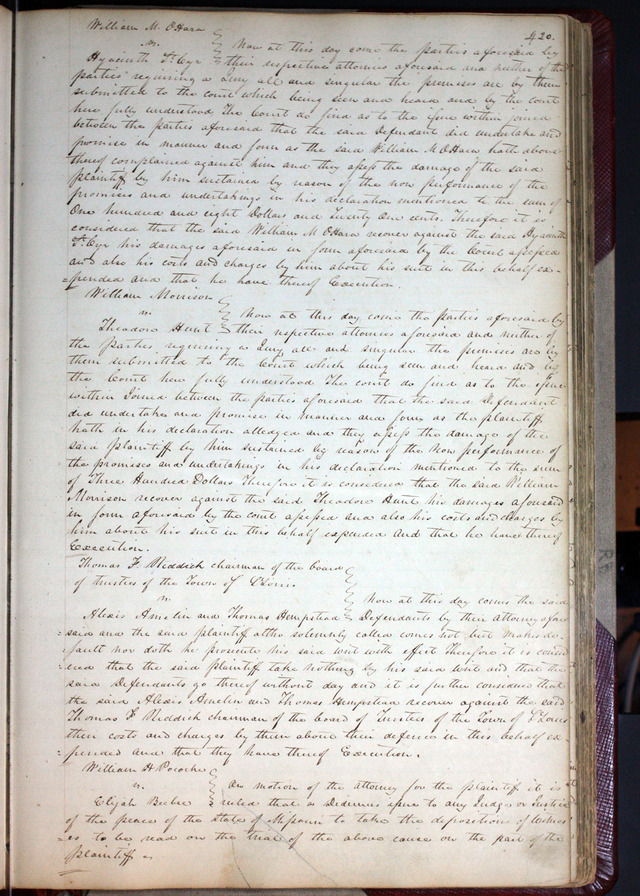 William M. OHara
420.
vs.
Now at this day come the parties aforesaid by
Hyacinth St. Cyr
their respective attornies aforesaid and neither of the
parties requiring a Jury all and singular the premises are by them
submitted to the court which being seen and heard and by the court
here fully understood The Court do find as to the issue within joined
between the parties aforesaid that the said Defendant did undertake and
promise in manner and form as the said William M OHara hath above
thereof complained against him and they assess the damage of the said
plaintiff by him sustained by reason of the non performance of the
promises and undertakings in his declaration mentioned to the sum of
One hundred and eight Dollars and Twenty One cents. Therefore it is
considered that the said William M OHara recover against the said Hyacinth
St. Cyr his damages aforesaid in form aforesaid by the Court assessed
and also his costs and charges by him about his suit in this behalf ex-
=pended and that he have thereof Execution.
William Morrison
vs.
Now at this day come the parties aforesaid by
Theodore Hunt
their respective attornies aforesaid and neither of
the parties requiring a Jury all and singular the premises are by
them submitted to the Court which being seen and heard and by
the Court here fully understood The court do find as to the issue
within Joined between the parties aforesaid that the said Defendant
did undertake and promise in manner and form as the plaintiff
hath in his declaration alledged and they assess the damage of the
said plaintiff by him sustained by reason of the Non performance of
the promises and undertakings in his declaration mentioned to the sum
of Three Hundred Dollars Therefore it is considered that the said William
Morrison recover against the said Theodore Hunt his damages aforesaid
in form aforesaid by the court assessed and also his costs and charges by
him about his suit in this behalf expended And that he have thereof
Execution.
Thomas F. Riddick chairman of the board
of trustees of the Town of St Louis
vs
Now at this day comes the said
Alexis Amelin and Thomas Hempstead
Defendants by their attorney afore
said and the said plaintiff altho solemnly called comes not but makes de-
fault nor doth he prosecute his said writ with effect Therefore it is consid
ered that the said plaintiff take nothing by his said writ and that the
said Defendants go thereof without day and it is further considered that
the said Alexis Amelin and Thomas Hempstead recover against the said
Thomas F. Riddick chairman of the board of Trustees of the Town of St Louis
their costs and charges by them about their defence in this behalf ex-
=pended and that they have thereof Execution.
William H Pocoche
vs.
On motion of the attorney for the plaintiff it is
Elijah Beebe
ruled that a Dedimus issue to any Judge or Justice
of the peace of the State of Missouri to take the deposition of witness
es to be read on the trial of the above cause on the part of the
plaintiff